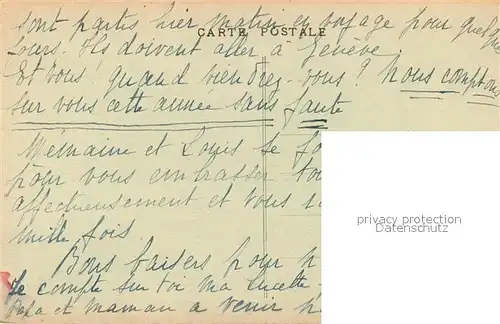 sont partis hier matin en voyage pour quelque
CARTE POSTALE
jours. Ils doivent aller à Genève
Et vous ! quand viendrez-vous ? Nous comptons
sur vous cette année sans faute
et Louis se
pour vous embrasser
affectueusement et vous
mille fois.
Bons baisers pour
Je compte sur toi ma Lucette
Papa et maman à venir
privacy protection
Datenschutz